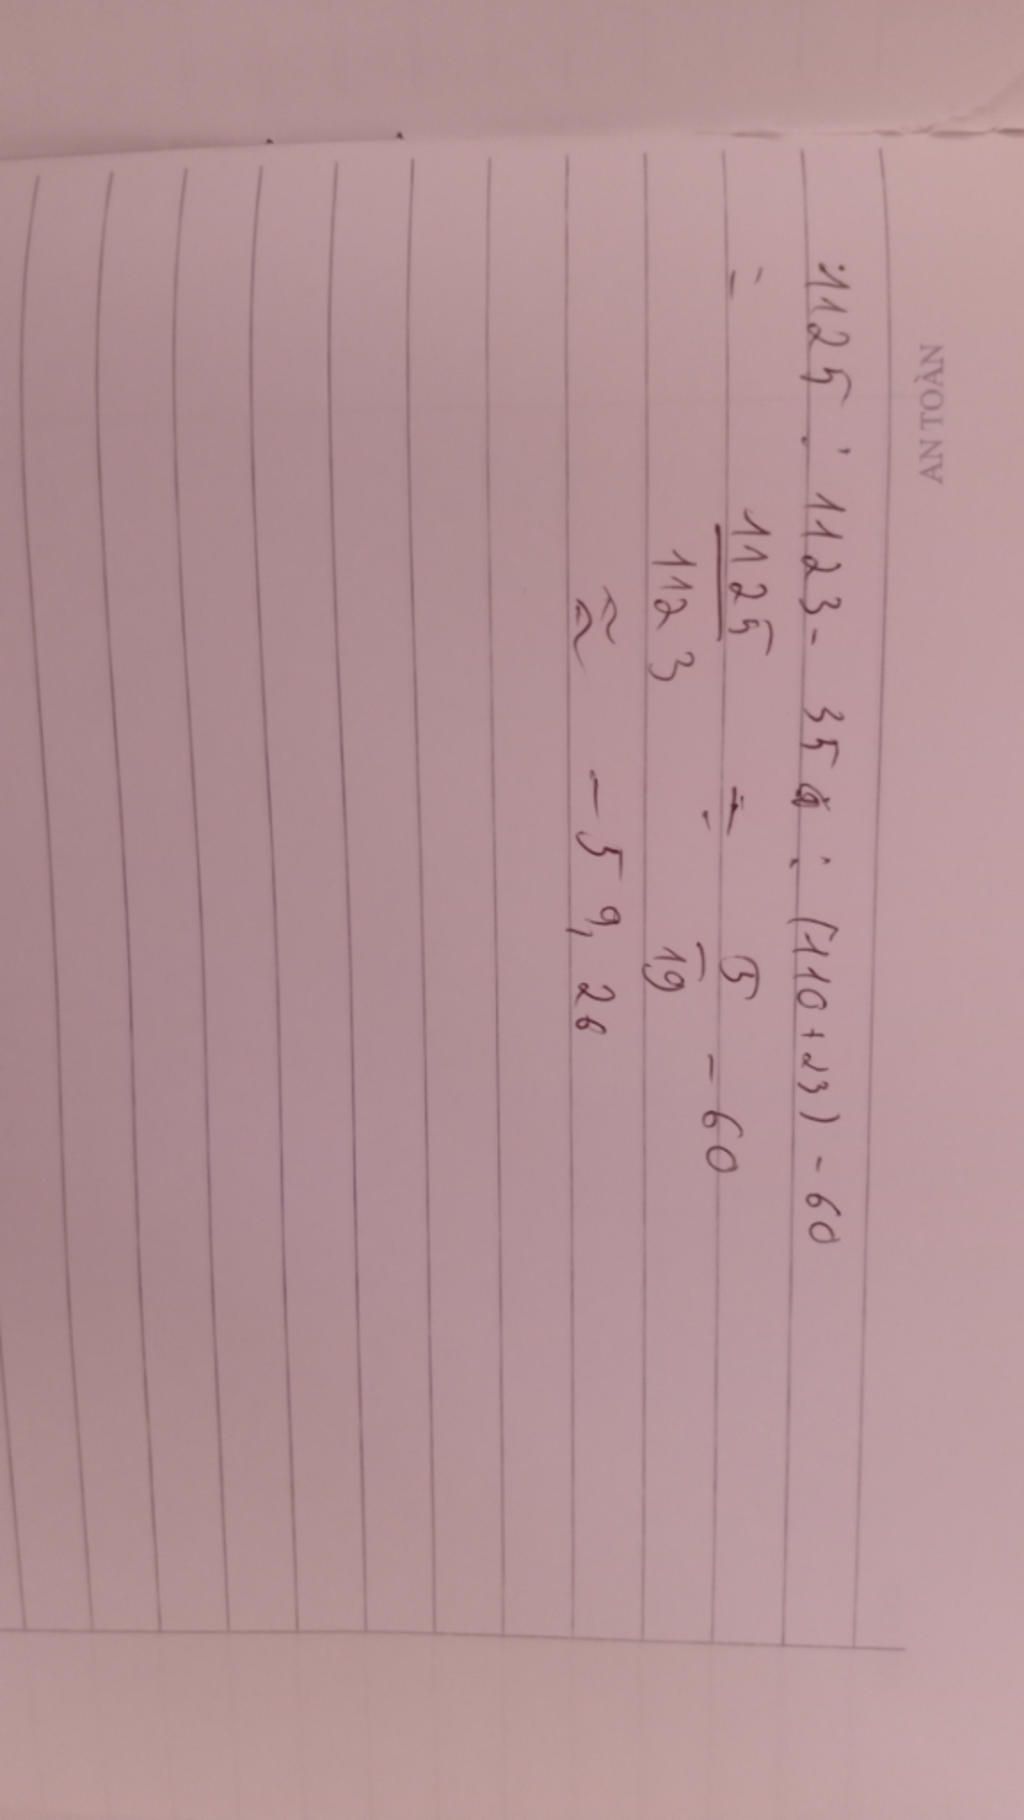 AN TOÀN
1125 : 1123 - 35 : (110 + 23) - 60
= 1125/1123 - 5/19 - 60
≈ -59,26